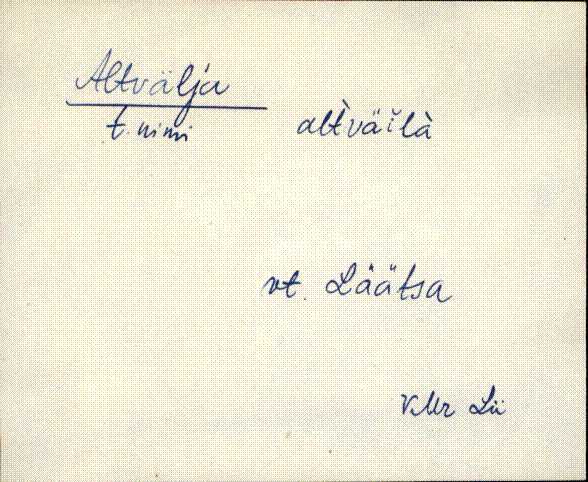 Altvälja
t. nimi alt̀väĭlà
vt. Läätsa
VMr Lü